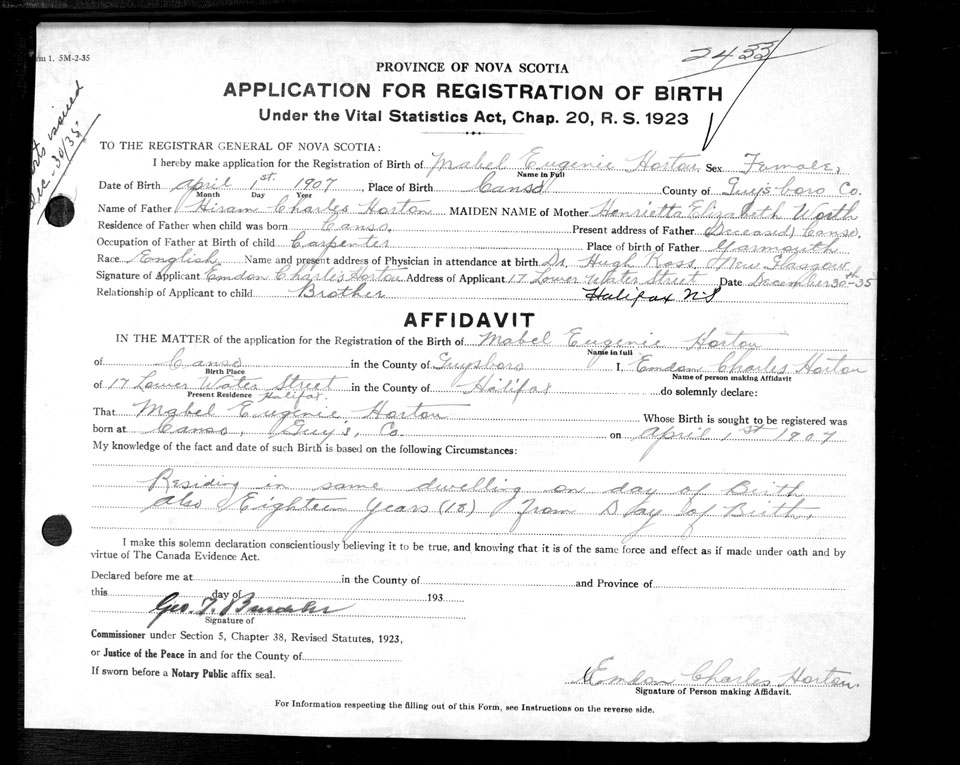 rm 1. 5M-2-35
2433
PROVINCE OF NOVA SCOTIA
APPLICATION FOR REGISTRATION OF BIRTH
Under the Vital Statistics Act, Chap. 20, R. S. 1923
issued
Dec - 30/35
TO THE REGISTRAR GENERAL OF NOVA SCOTIA:
I hereby make application for the Registration of Birth of Mabel Eugenie Horton Sex Female,
Name in Full
Date of Birth April 1st. 1907, Place of Birth Canso County of Guysboro Co.
Month Day Year
Name of Father Hiram Charles Horton MAIDEN NAME of Mother Henrietta Elizabeth Worth
Residence of Father when child was born Canso, Present address of Father (Deceased) Canso.
Occupation of Father at Birth of child Carpenter Place of birth of Father Yarmouth
Race English Name and present address of Physician in attendance at birth Dr. Hugh Ross New Glasgow
Signature of Applicant Emdon Charles Horton Address of Applicant 17 Lower Water Street Date December 30th-35
Relationship of Applicant to child Brother Halifax NS
AFFIDAVIT
IN THE MATTER of the application for the Registration of the Birth of Mabel Eugenie Horton
Name in full
of Canso in the County of Guysboro I, Emdon Charles Horton
Birth Place Name of person making Affidavit
of 17 Lower Water Street in the County of Halifax do solemnly declare:
Present Residence Halifax.
That Mabel Eugenie Horton Whose Birth is sought to be registered was
born at Canso, Guy's, Co. on April 1st 1907
My knowledge of the fact and date of such Birth is based on the following Circumstances:
Residing in same dwelling on day of Birth
also Eighteen Years (18) from Day of Birth.
I make this solemn declaration conscientiously believing it to be true, and knowing that it is of the same force and effect as if made under oath and by
virtue of The Canada Evidence Act.
Declared before me at in the County of and Province of
this day of 193
Geo. T.
Signature of
Commissioner under Section 5, Chapter 38, Revised Statutes, 1923,
or Justice of the Peace in and for the County of
If sworn before a Notary Public affix seal.
Emdon Charles Horton.
Signature of Person making Affidavit.
For Information respecting the filling out of this Form, see Instructions on the reverse side.